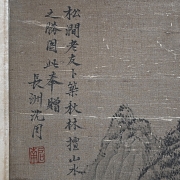 松澗老友卜築秋林擅山水
之勝圖此奉贈
長洲沈周